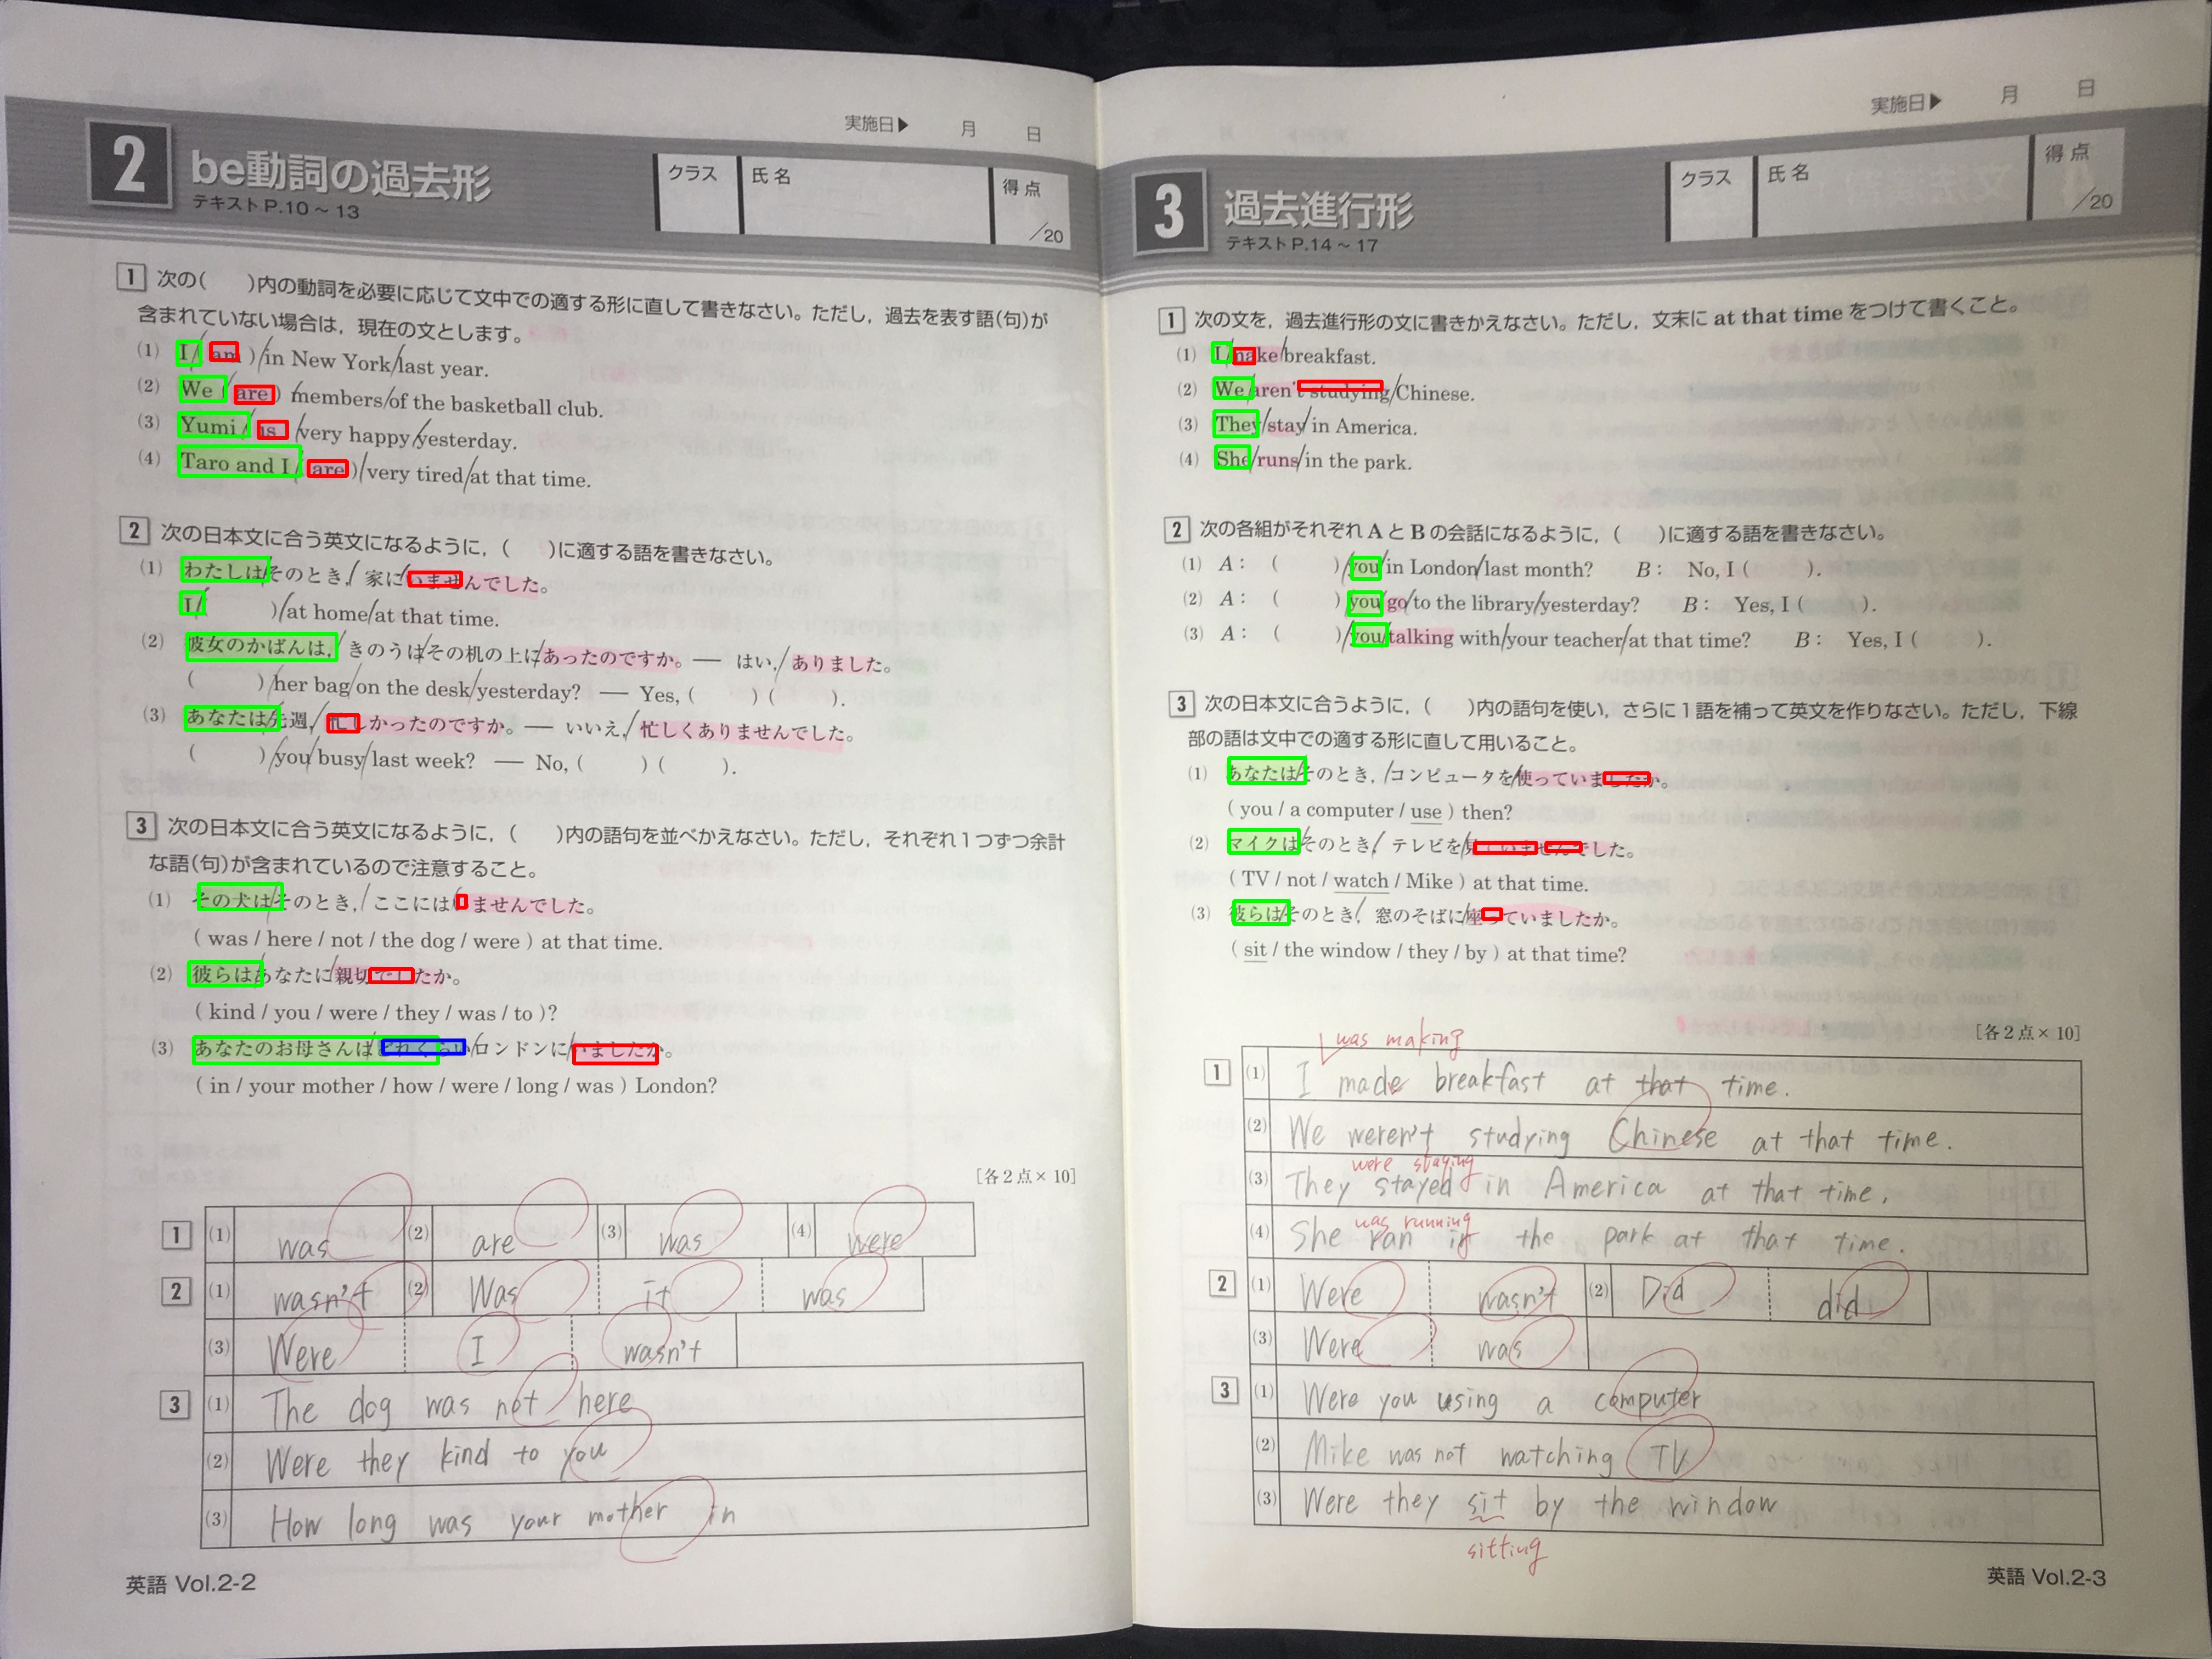 実施日▶ 月 日
2 be動詞の過去形
テキストP.10～13
クラス 氏名 得点 /20
1 次の( )内の動詞を必要に応じて文中での適する形に直して書きなさい。ただし，過去を表す語(句)が
含まれていない場合は，現在の文とします。
(1) I ( am ) in New York last year.
(2) We ( are ) members of the basketball club.
(3) Yumi ( is ) very happy yesterday.
(4) Taro and I ( are ) very tired at that time.
2 次の日本文に合う英文になるように，( )に適する語を書きなさい。
(1) わたしはそのとき，家にいませんでした。
I ( ) at home at that time.
(2) 彼女のかばんは，きのうはその机の上にあったのですか。— はい，ありました。
( ) her bag on the desk yesterday? — Yes, ( ) ( ).
(3) あなたは先週，忙しかったのですか。— いいえ，忙しくありませんでした。
( ) you busy last week? — No, ( ) ( ).
3 次の日本文に合う英文になるように，( )内の語句を並べかえなさい。ただし，それぞれ1つずつ余計
な語(句)が含まれているので注意すること。
(1) その犬はそのとき，ここにはいませんでした。
( was / here / not / the dog / were ) at that time.
(2) 彼らはあなたに親切でしたか。
( kind / you / were / they / was / to )?
(3) あなたのお母さんはどれくらいロンドンにいましたか。
( in / your mother / how / were / long / was ) London?
[各2点×10]
1 (1) was (2) are (3) was (4) were
2 (1) wasn't (2) Was it was
(3) Were I wasn't
3 (1) The dog was not here
(2) Were they kind to you
(3) How long was your mother in
英語 Vol.2-2
実施日▶ 月 日
3 過去進行形
テキストP.14～17
クラス 氏名 得点 /20
1 次の文を，過去進行形の文に書きかえなさい。ただし，文末に at that time をつけて書くこと。
(1) I make breakfast.
(2) We aren't studying Chinese.
(3) They stay in America.
(4) She runs in the park.
2 次の各組がそれぞれ A と B の会話になるように，( )に適する語を書きなさい。
(1) A : ( ) you in London last month? B : No, I ( ).
(2) A : ( ) you go to the library yesterday? B : Yes, I ( ).
(3) A : ( ) you talking with your teacher at that time? B : Yes, I ( ).
3 次の日本文に合うように，( )内の語句を使い，さらに1語を補って英文を作りなさい。ただし，下線
部の語は文中での適する形に直して用いること。
(1) あなたはそのとき，コンピュータを使っていましたか。
( you / a computer / use ) then?
(2) マイクはそのとき，テレビを見ていませんでした。
( TV / not / watch / Mike ) at that time.
(3) 彼らはそのとき，窓のそばに座っていましたか。
( sit / the window / they / by ) at that time?
[各2点×10]
was making
1 (1) I made breakfast at that time.
(2) We weren't studying Chinese at that time.
were staying
(3) They stayed in America at that time.
was running
(4) She ran in the park at that time.
2 (1) Were wasn't (2) Did did
(3) Were was
3 (1) Were you using a computer
(2) Mike was not watching TV
(3) Were they sit by the window
sitting
英語 Vol.2-3